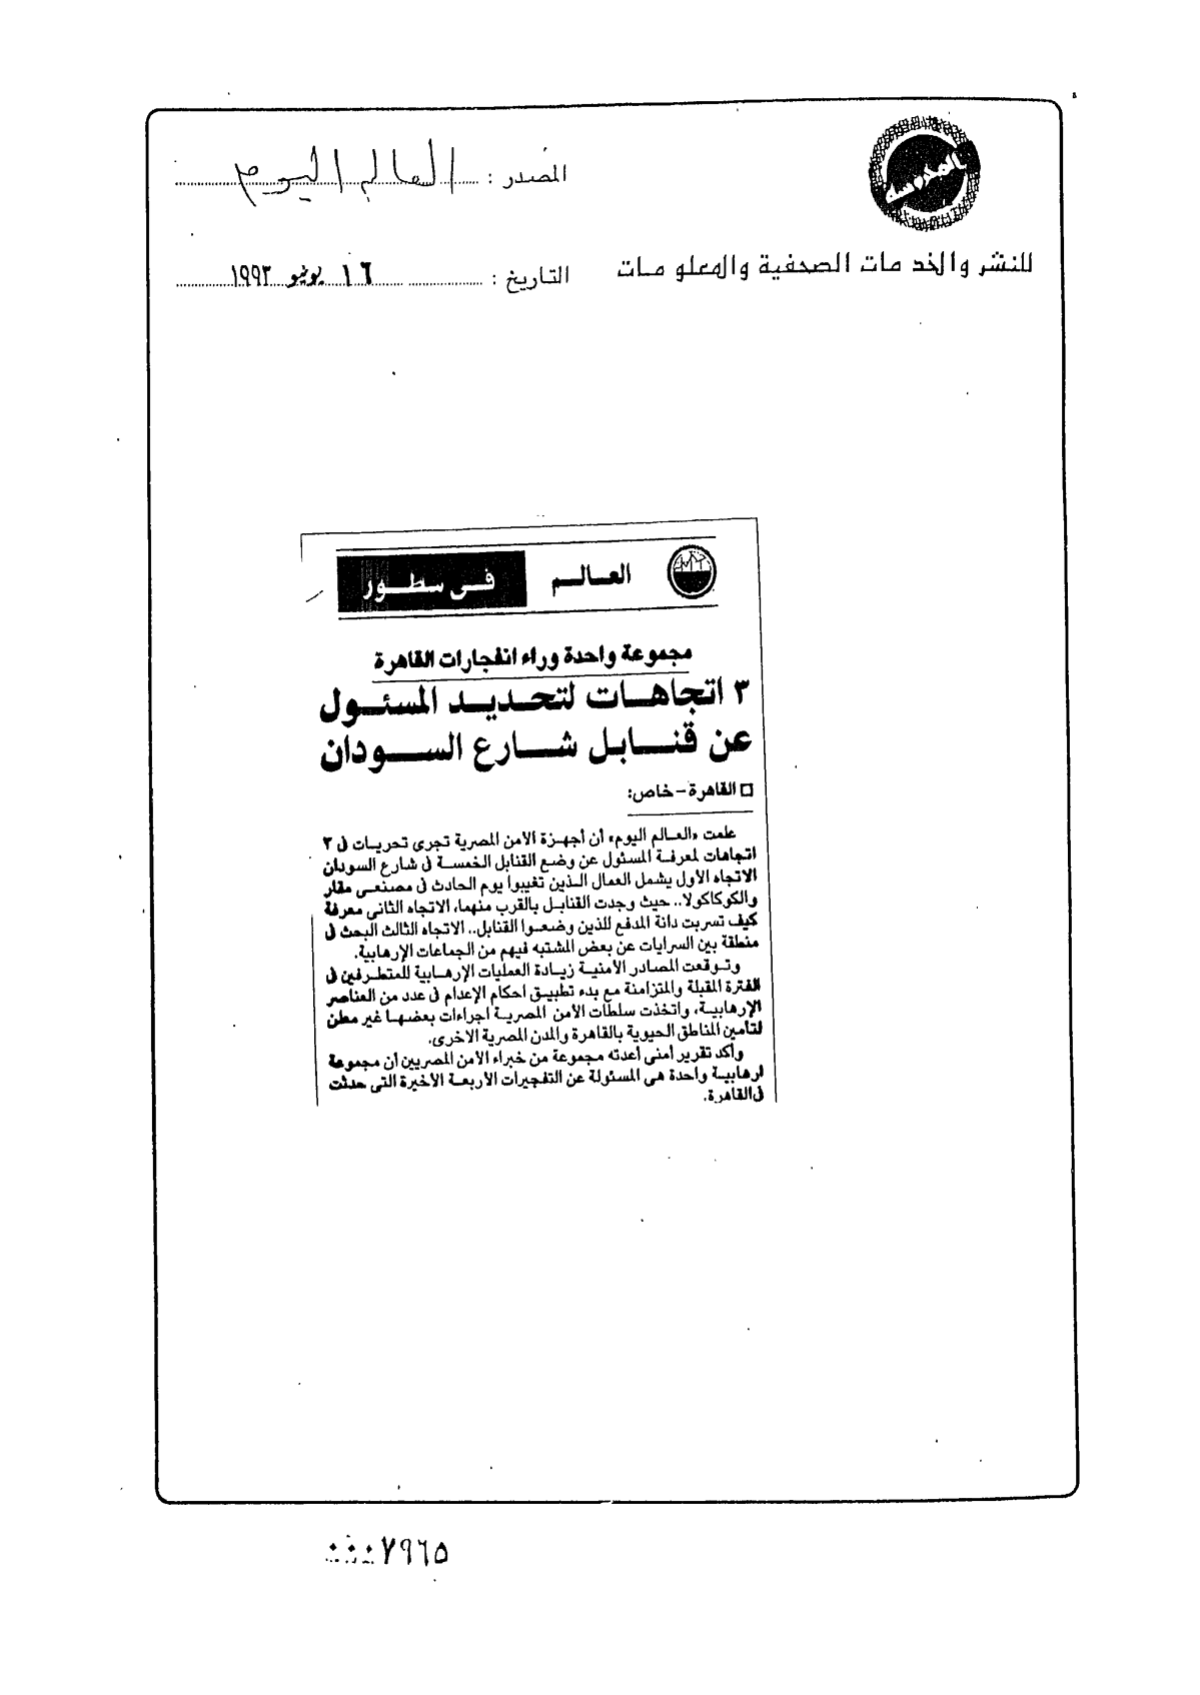 المصدر : العالم اليوم
للنشر والخدمات الصحفية والمعلومات
التاريخ : ١٦ يونيو ١٩٩٣
العالم فى سطور
مجموعة واحدة وراء انفجارات القاهرة
٣ اتجاهات لتحديد المسئول
عن قنابل شارع السودان
القاهرة - خاص:
علمت «العالم اليوم» أن أجهزة الأمن المصرية تجرى تحريات فى ٣
اتجاهات لمعرفة المسئول عن وضع القنابل الخمسة فى شارع السودان
الاتجاه الأول يشمل العمال الذين تغيبوا يوم الحادث فى مصنعى مقار
والكوكاكولا.. حيث وجدت القنابل بالقرب منهما، الاتجاه الثانى معرفة
كيف تسربت دانة المدفع للذين وضعوا القنابل.. الاتجاه الثالث البحث فى
منطقة بين السرايات عن بعض المشتبه فيهم من الجماعات الإرهابية.
وتوقعت المصادر الأمنية زيادة العمليات الإرهابية للمتطرفين فى
الفترة المقبلة والمتزامنة مع بدء تطبيق أحكام الإعدام فى عدد من العناصر
الإرهابية، واتخذت سلطات الأمن المصرية اجراءات بعضها غير معلن
لتأمين المناطق الحيوية بالقاهرة والمدن المصرية الاخرى.
وأكد تقرير أمنى أعدته مجموعة من خبراء الأمن المصريين أن مجموعة
ارهابية واحدة هى المسئولة عن التفجيرات الأربعة الاخيرة التى حدثت
فى القاهرة.
٧٩٦٥